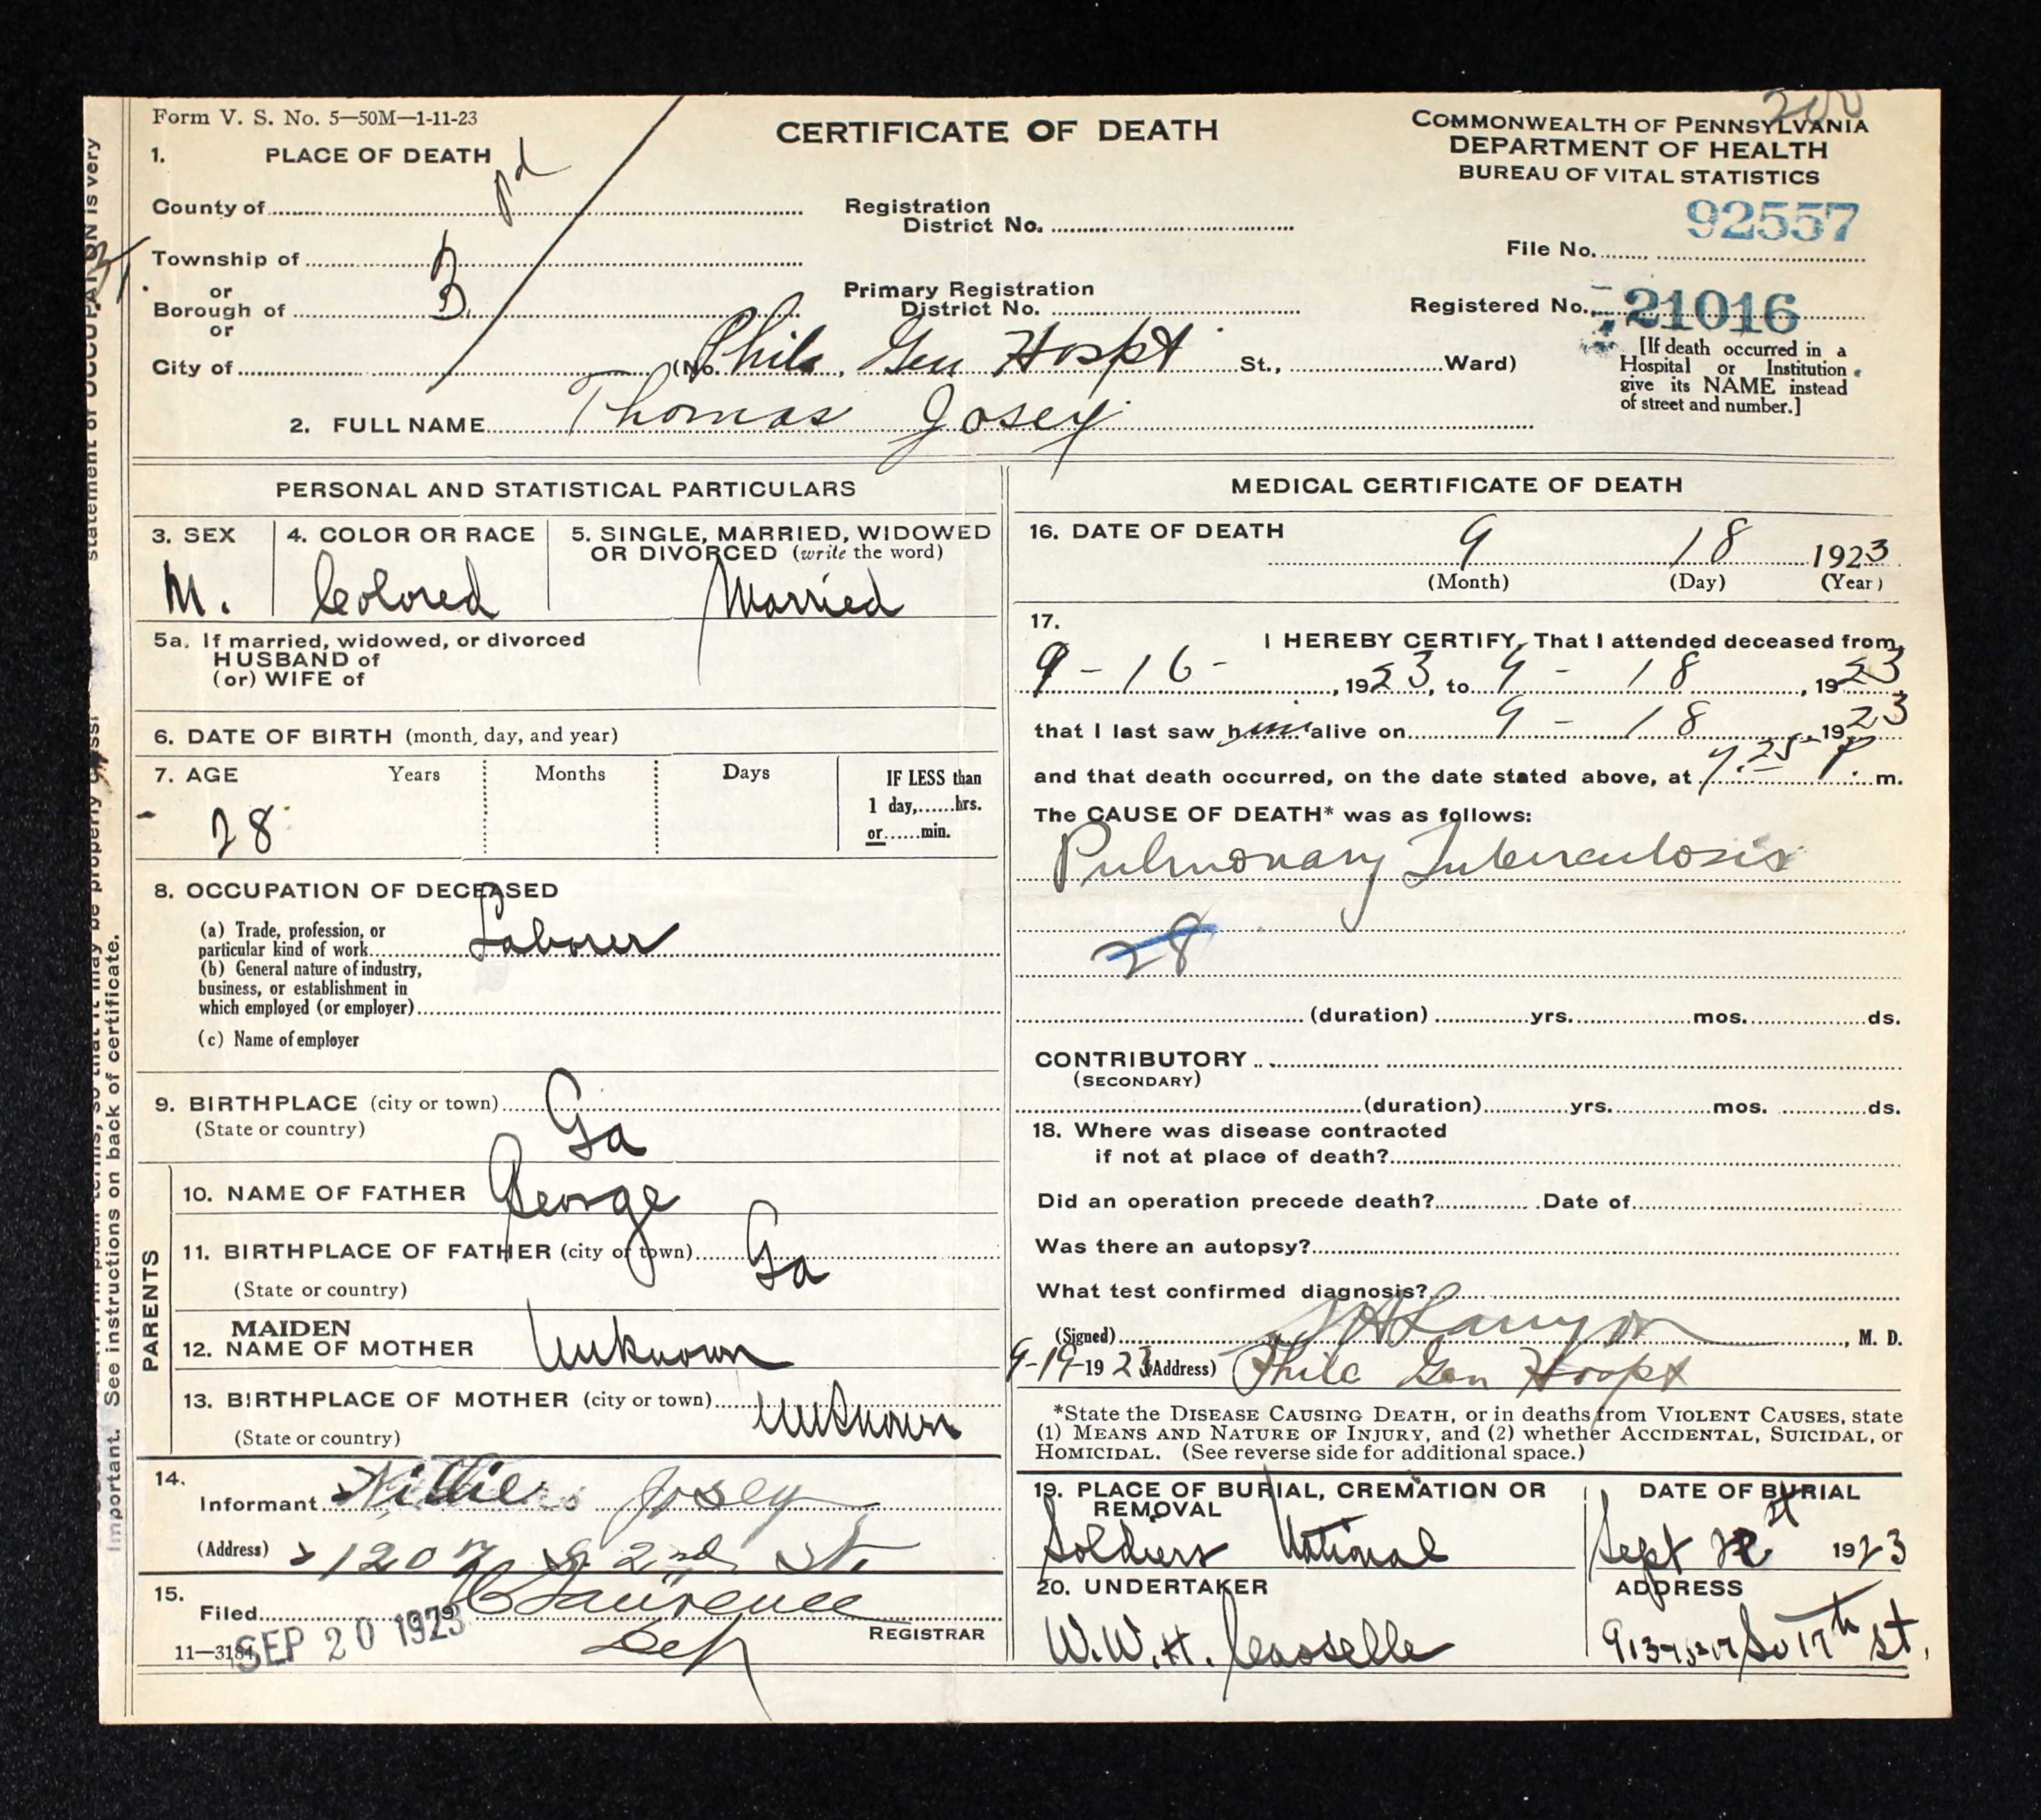 Form V. S. No. 5—50M—1-11-23
CERTIFICATE OF DEATH
COMMONWEALTH OF PENNSYLVANIA
DEPARTMENT OF HEALTH
BUREAU OF VITAL STATISTICS
1. PLACE OF DEATH
pd
County of
Registration
District No.
92557
File No.
Township of
or
Borough of
or
3
Primary Registration
District No.
Registered No. 21016
City of (No. Phila. Gen Hospt St., Ward)
[If death occurred in a
Hospital or Institution
give its NAME instead
of street and number.]
2. FULL NAME Thomas Josey
PERSONAL AND STATISTICAL PARTICULARS
3. SEX
M.
4. COLOR OR RACE
Colored
5. SINGLE, MARRIED, WIDOWED
OR DIVORCED (write the word)
Married
5a. If married, widowed, or divorced
HUSBAND of
(or) WIFE of
6. DATE OF BIRTH (month, day, and year)
7. AGE Years Months Days
28
IF LESS than
1 day, hrs.
or min.
8. OCCUPATION OF DECEASED
(a) Trade, profession, or
particular kind of work Laborer
(b) General nature of industry,
business, or establishment in
which employed (or employer)
(c) Name of employer
9. BIRTHPLACE (city or town)
(State or country) Ga
PARENTS
10. NAME OF FATHER George
11. BIRTHPLACE OF FATHER (city or town) Ga
(State or country)
12. MAIDEN
NAME OF MOTHER Unknown
13. BIRTHPLACE OF MOTHER (city or town) Unknown
(State or country)
14.
Informant Willie Josey
(Address) 1207 S. 2nd St.
15.
Filed SEP 20 1923 Laurence
Dep REGISTRAR
11—3184
MEDICAL CERTIFICATE OF DEATH
16. DATE OF DEATH 9 18 1923
(Month) (Day) (Year)
17.
I HEREBY CERTIFY, That I attended deceased from
9-16-, 1923, to 9 - 18, 1923
that I last saw him alive on 9 - 18 1923
and that death occurred, on the date stated above, at P. m.
The CAUSE OF DEATH* was as follows:
Pulmonary Tuberculosis
28
(duration) yrs. mos. ds.
CONTRIBUTORY
(SECONDARY)
(duration) yrs. mos. ds.
18. Where was disease contracted
if not at place of death?
Did an operation precede death? Date of
Was there an autopsy?
What test confirmed diagnosis?
(Signed) , M. D.
9-19-1923 (Address) Phila Gen Hospt
*State the DISEASE CAUSING DEATH, or in deaths from VIOLENT CAUSES, state
(1) MEANS AND NATURE OF INJURY, and (2) whether ACCIDENTAL, SUICIDAL, or
HOMICIDAL. (See reverse side for additional space.)
19. PLACE OF BURIAL, CREMATION OR
REMOVAL
Soldiers National
DATE OF BURIAL
Sept 1923
20. UNDERTAKER
W.W.H. Casselle
ADDRESS
So 17th St.
statement of OCCUPATION is very
important. See instructions on back of certificate.